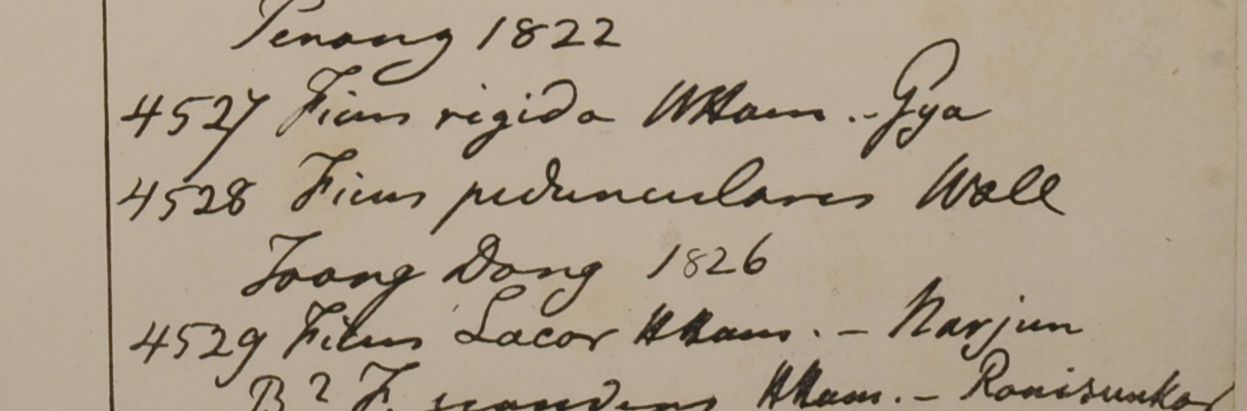 Penang 1822
4527 Ficus rigida HHam. - Gya
4528 Ficus peduncularis Wall
Toong Dong 1826
4529 Ficus Lacor HHam. - Narjun
B? F. scandens HHam. - Ronisunkar